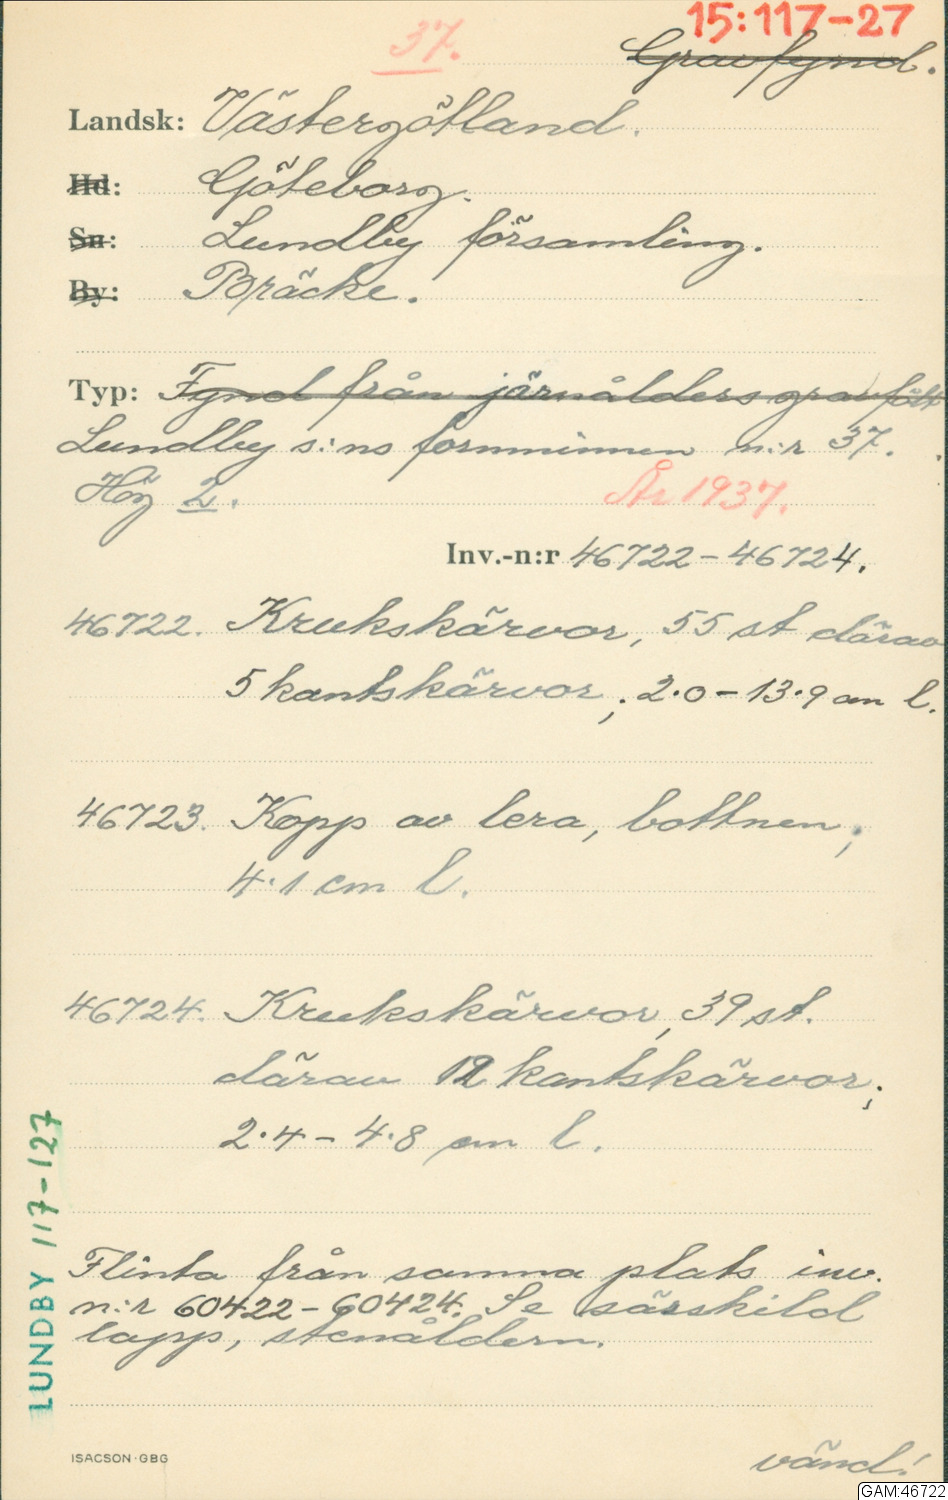 15:117-27
37.
Gravfynd.
Landsk: Västergötland.
Hd: Göteborg.
Sn: Lundby församling.
By: Bräcke.
Typ: Fynd från järnålders gravfält
Lundby s:ns fornminnen n:r 37.
Hög 2.
År 1937.
Inv.-n:r 46722-46724.
46722. Krukskärvor, 55 st därav
5 kantskärvor; 2.0-13.9 cm l.
46723. Kopp av lera, bottnen;
4.1 cm l.
46724. Krukskärvor, 39 st.
därav 12 kantskärvor;
2.4-4.8 cm l.
Flinta från samma plats inv.
n:r 60422-60424. Se särskild
lapp, stenåldern.
LUNDBY 117-127
ISACSON·GBG
vänd!
GAM:46722